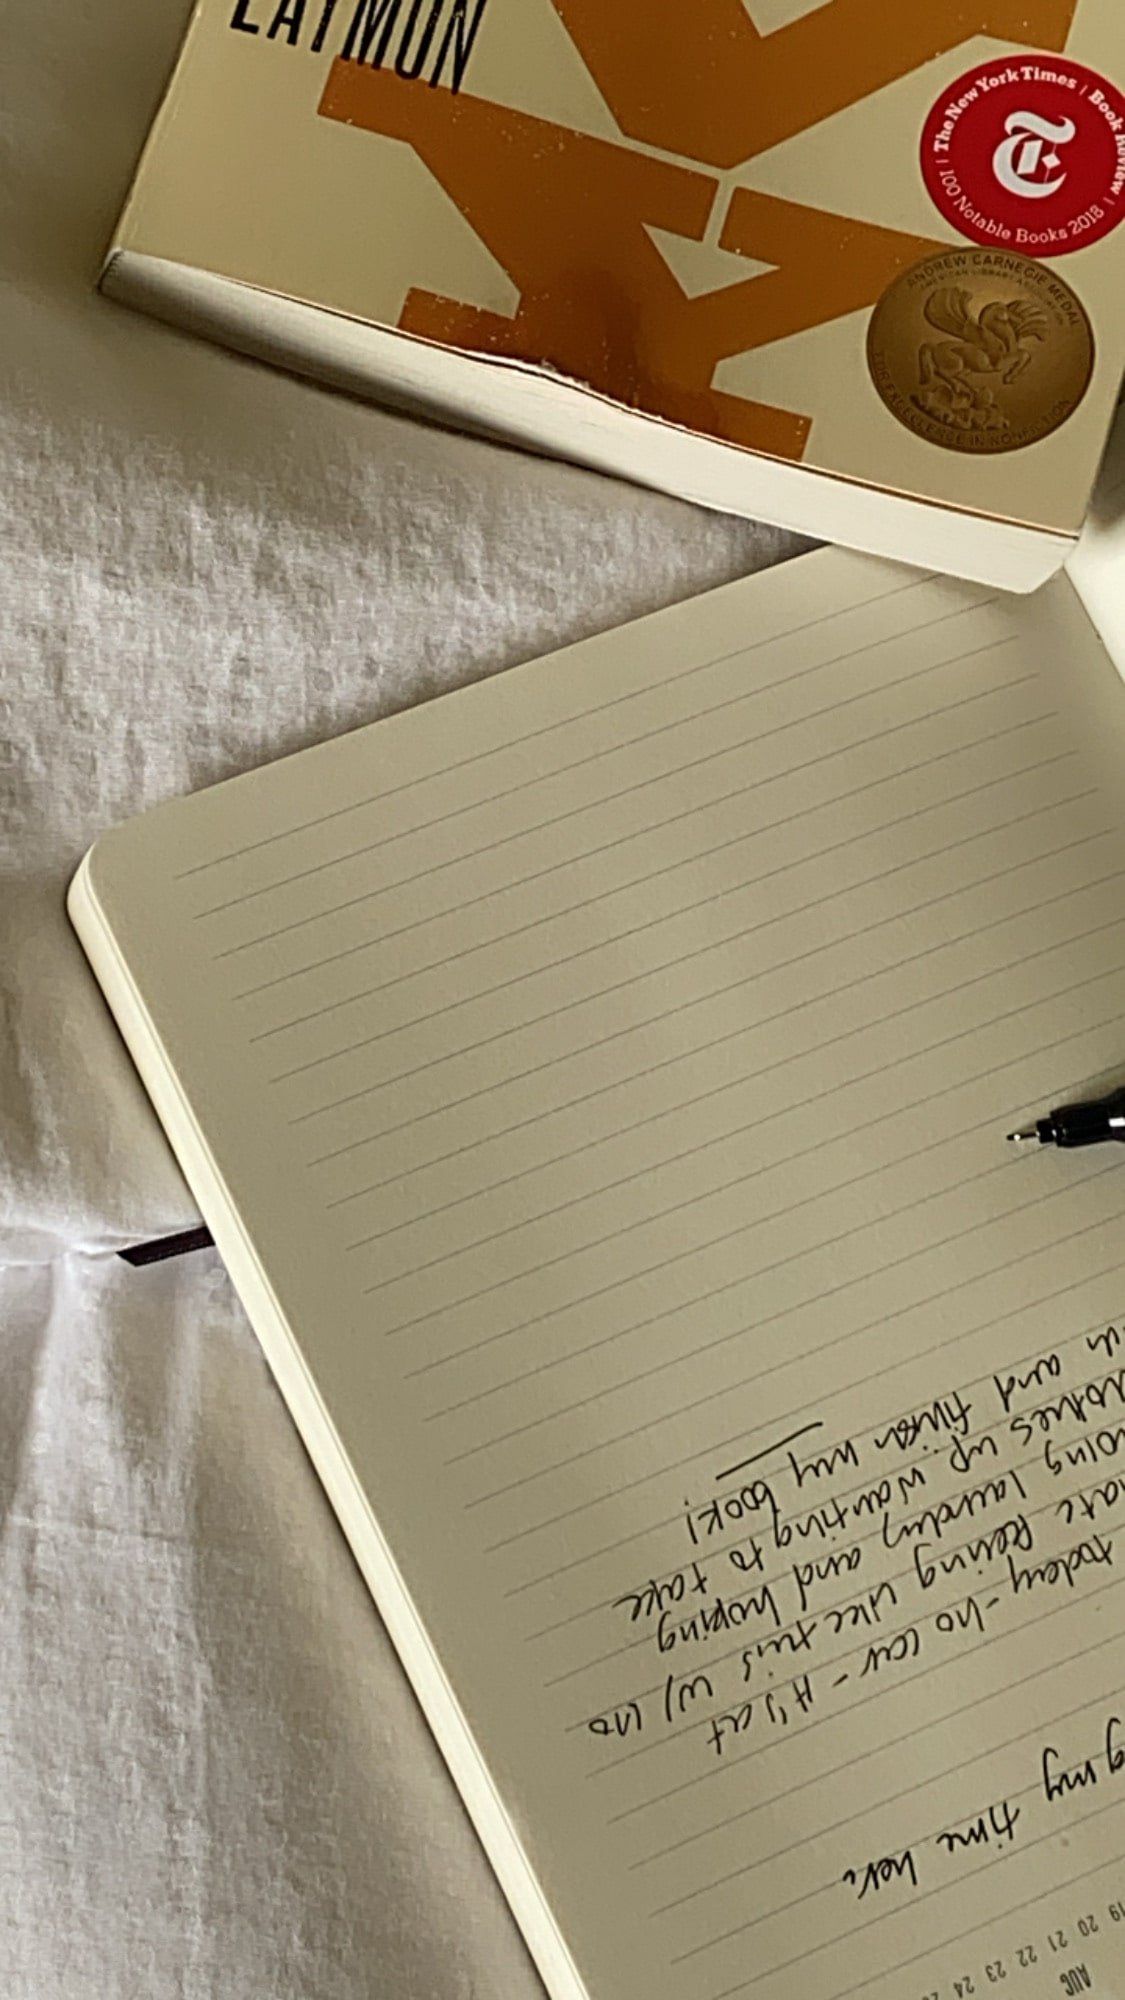 LAYMON
The New York Times | Book Review |
100 Notable Books 2018 |
T
ANDREW CARNEGIE MEDAL
AMERICAN LIBRARY ASSOCIATION
FOR EXCELLENCE IN NONFICTION
AUG
19 20 21 22 23 24
g my time here
today - no car - it's at
hate feeling like this w/ no
doing laundry and hoping
clothes up wanting to take
and finish my book!